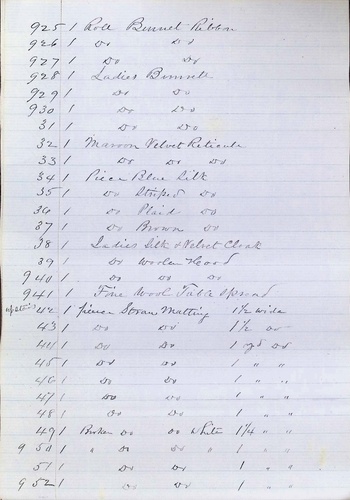 925 1 Roll Bonnet Ribbon
926 1 Do Do
927 1 Do Do
928 1 Ladies Bonnett
929 1 Do Do
930 1 Do Do
31 1 Do Do
32 1 Maroon Velvet Reticule
33 1 Do Do Do
34 1 Piece Blue Silk
35 1 Do Striped Do
36 1 Do Plaid Do
37 1 Do Brown Do
38 1 Ladies Silk & Velvet Cloak
39 1 Do Woolen Hood
940 1 Do Do Do
941 1 Fine Wool Table Spread
42 1 piece Straw Matting 1½ wide
43 1 Do Do 1½ Do
44 1 Do Do 1 yd Do
45 1 Do Do 1 " "
46 1 Do Do 1 " "
47 1 Do Do 1 " "
48 1 Do Do 1 " "
49 1 Broken Do Do White 1¼ " "
950 1 " Do Do " 1 " "
51 1 Do Do 1 " "
952 1 Do Do 1 " "